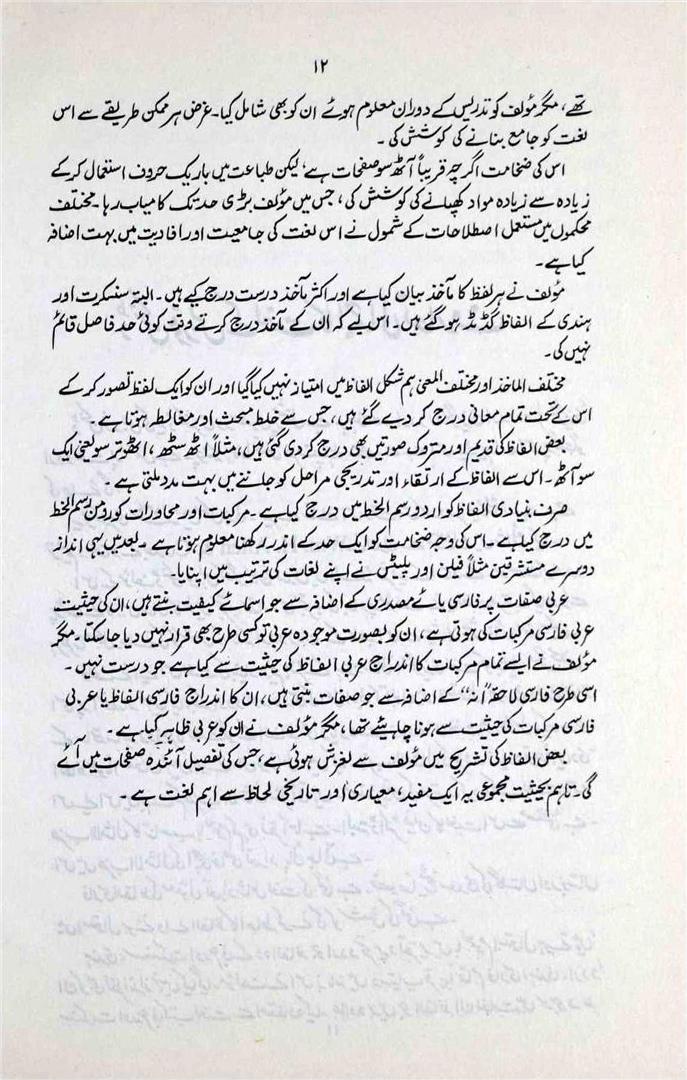 ۱۲
تھے، مگر مؤلف کو تدریس کے دوران معلوم ہوئے ان کو بھی شامل کیا۔ غرض ہر ممکن طریقے سے اس
لغت کو جامع بنانے کی کوشش کی۔
اس کی ضخامت اگرچہ قریباً آٹھ سو صفحات ہے، لیکن طباعت میں باریک حروف استعمال کر کے
زیادہ سے زیادہ مواد کھپانے کی کوشش کی، جس میں مؤلف بڑی حد تک کامیاب رہا۔ مختلف
محکموں میں مستعمل اصطلاحات کے شمول نے اس لغت کی جامعیت اور افادیت میں بہت اضافہ
کیا ہے۔
مؤلف نے ہر لفظ کا مآخذ بیان کیا ہے اور اکثر مآخذ درست درج کیے ہیں۔ البتہ سنسکرت اور
ہندی کے الفاظ گڈ مڈ ہو گئے ہیں۔ اس لیے کہ ان کے مآخذ درج کرتے وقت کوئی حد فاصل قائم
نہیں کی۔
مختلف الماخذ اور مختلف المعنیٰ ہم شکل الفاظ میں امتیاز نہیں کیا گیا اور ان کو ایک لفظ تصور کر کے
اس کے تحت تمام معانی درج کر دیے گئے ہیں، جس سے خلط مبحث اور مغالطہ ہوتا ہے۔
بعض الفاظ کی قدیم اور متروک صورتیں بھی درج کر دی گئی ہیں، مثلاً اٹھ سٹھ، اٹھوتر سو یعنی ایک
سو آٹھ۔ اس سے الفاظ کے ارتقاء اور تدریجی مراحل کو جاننے میں بہت مدد ملتی ہے۔
صرف بنیادی الفاظ کو اردو رسم الخط میں درج کیا ہے۔ مرکبات اور محاورات کو رومن رسم الخط
میں درج کیا ہے۔ اس کی وجہ ضخامت کو ایک حد کے اندر رکھنا معلوم ہوتا ہے۔ بعد میں یہی انداز
دوسرے مستشرقین مثلاً فیلن اور پلیٹس نے اپنے لغات کی ترتیب میں اپنایا۔
عربی صفات پر فارسی یائے مصدری کے اضافہ سے جو اسمائے کیفیت بنتے ہیں، ان کی حیثیت
عربی فارسی مرکبات کی ہوتی ہے، ان کو بصورت موجودہ عربی تو کسی طرح بھی قرار نہیں دیا جا سکتا۔ مگر
مؤلف نے ایسے تمام مرکبات کا اندراج عربی الفاظ کی حیثیت سے کیا ہے جو درست نہیں۔
اسی طرح فارسی لاحقہ "انہ" کے اضافہ سے جو صفات بنتی ہیں، ان کا اندراج فارسی الفاظ یا عربی
فارسی مرکبات کی حیثیت سے ہونا چاہیئے تھا، مگر مؤلف نے ان کو عربی ظاہر کیا ہے۔
بعض الفاظ کی تشریح میں مؤلف سے لغزش ہوئی ہے، جس کی تفصیل آئندہ صفحات میں آئے
گی۔ تاہم بحیثیت مجموعی یہ ایک مفید، معیاری اور تاریخی لحاظ سے اہم لغت ہے۔